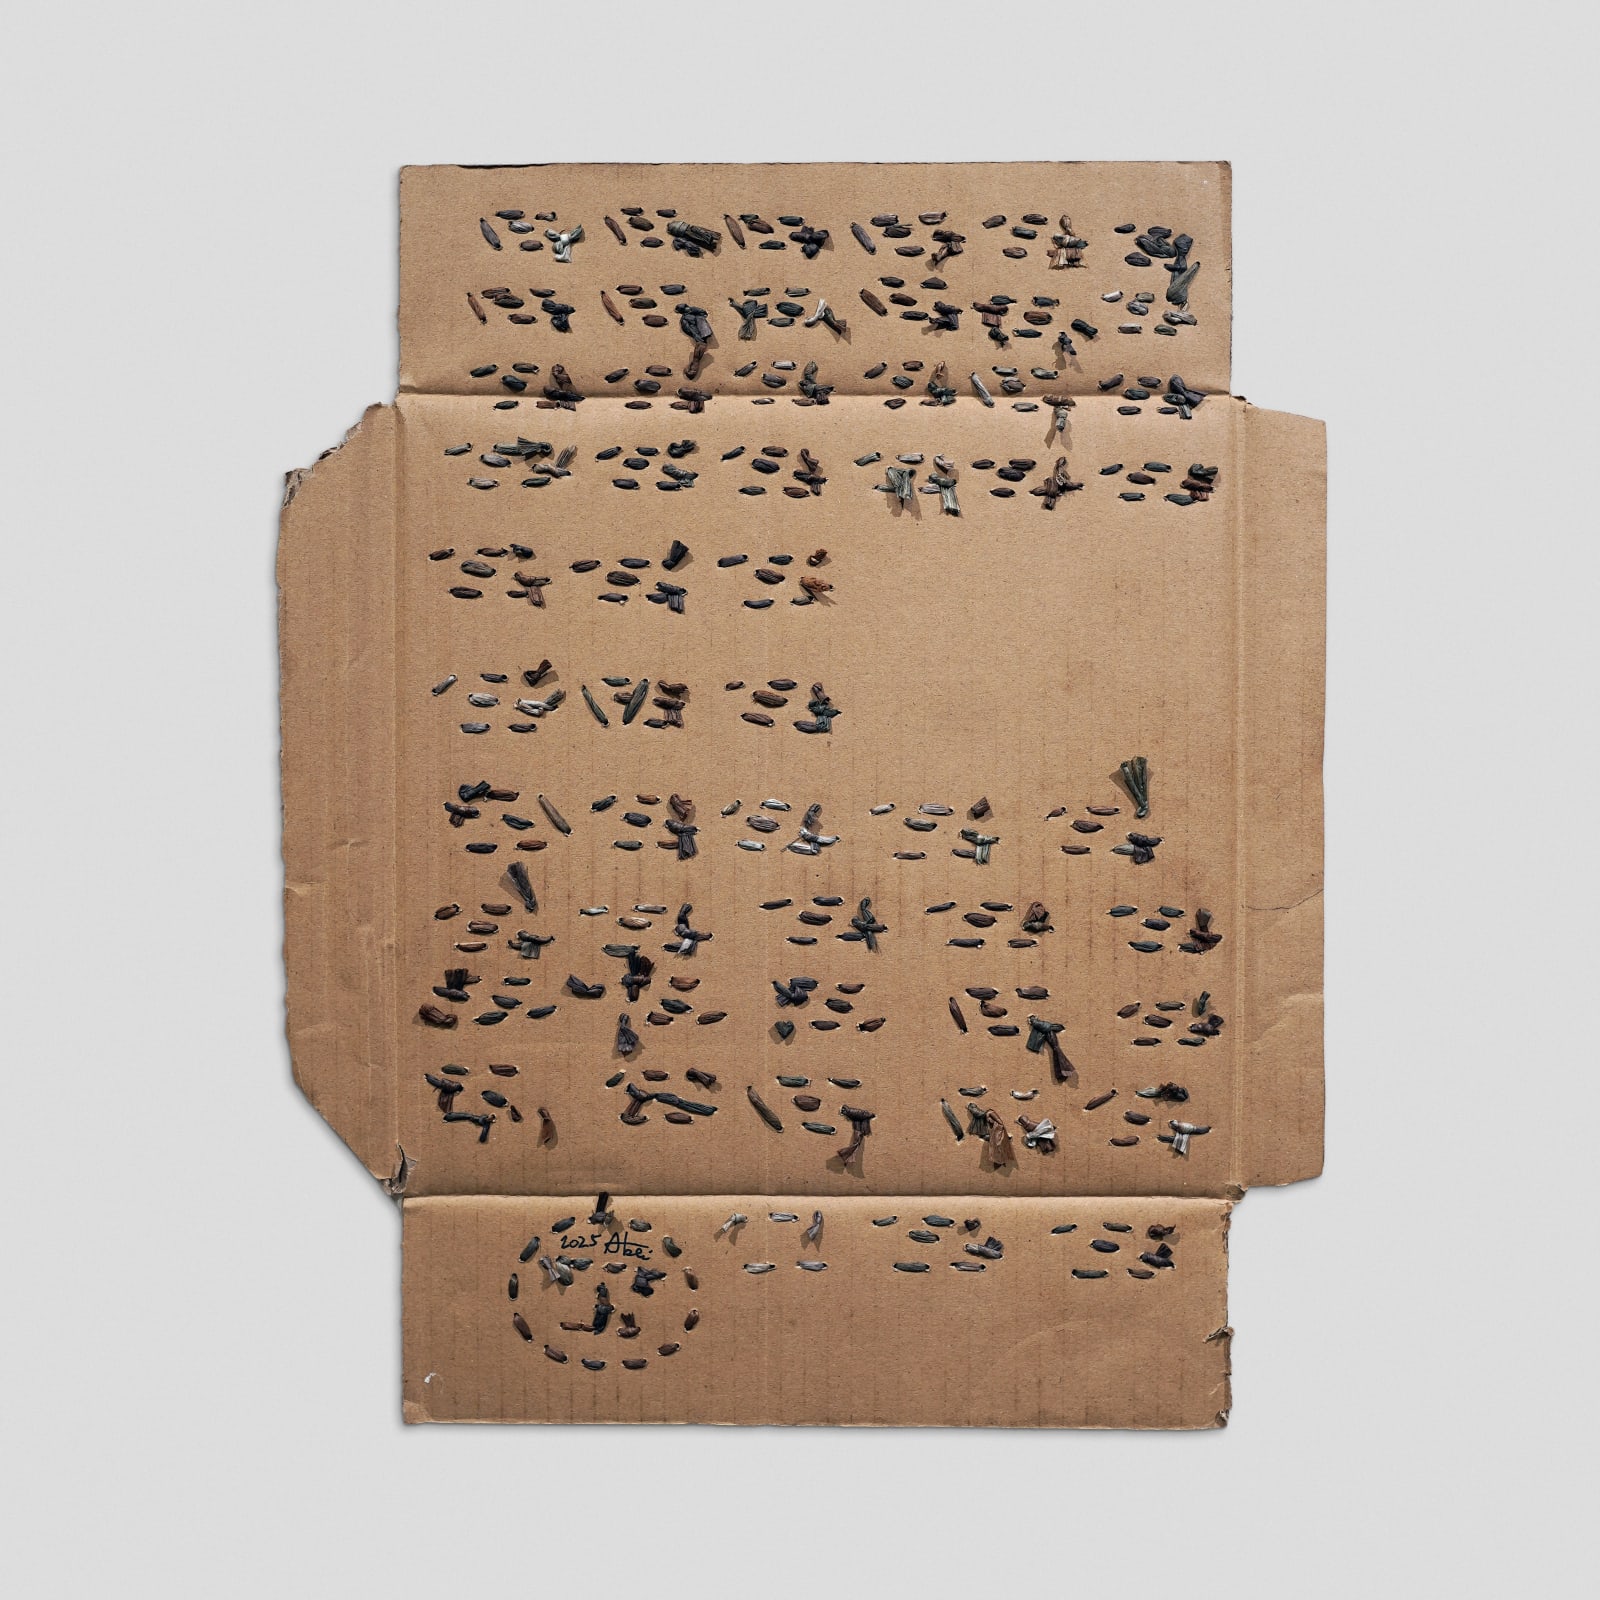 2025 Abei